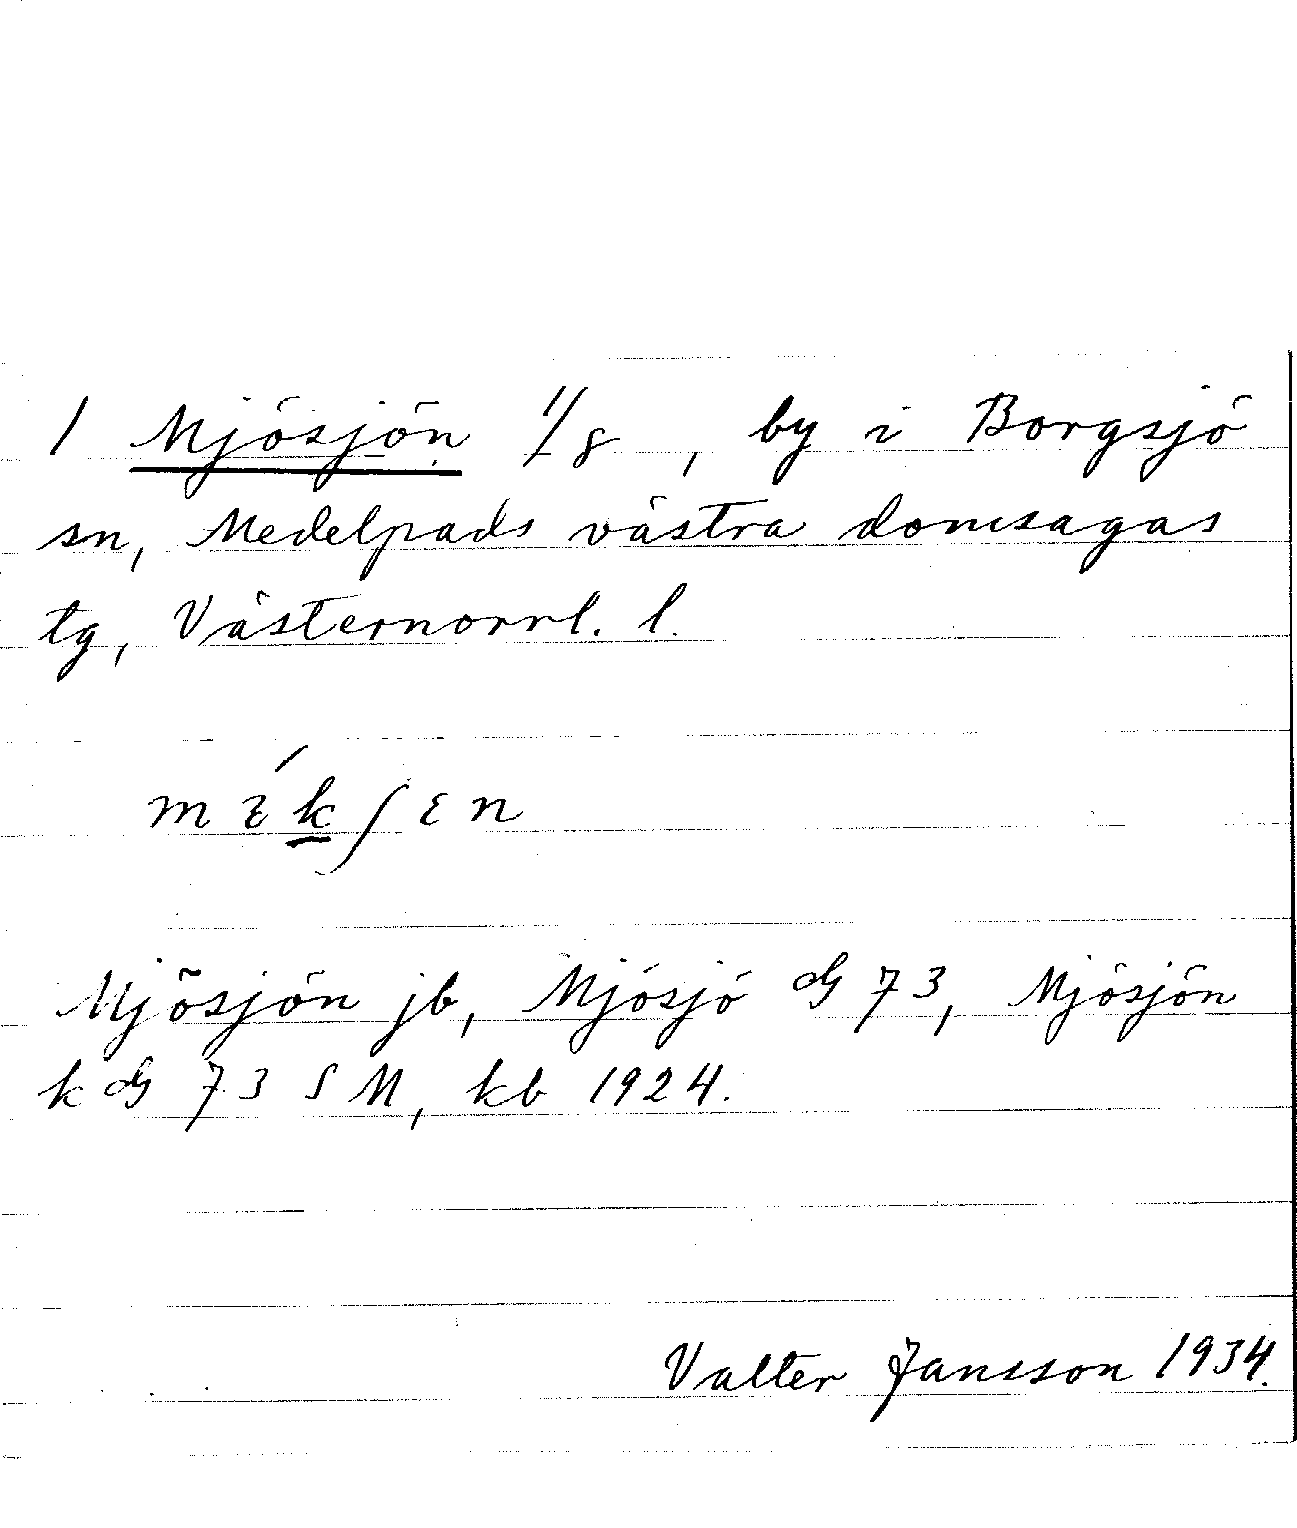 1 Mjösjön 1/8, by i Borgsjö
sn, Medelpads västra domsagas
tg, Västernorrl. l.
mɪ́kʃɛn
Mjösjön jb, Mjösjö dG 73, Mjösjön
k dG 73 S M, kb 1924.
Valter Jansson 1934.